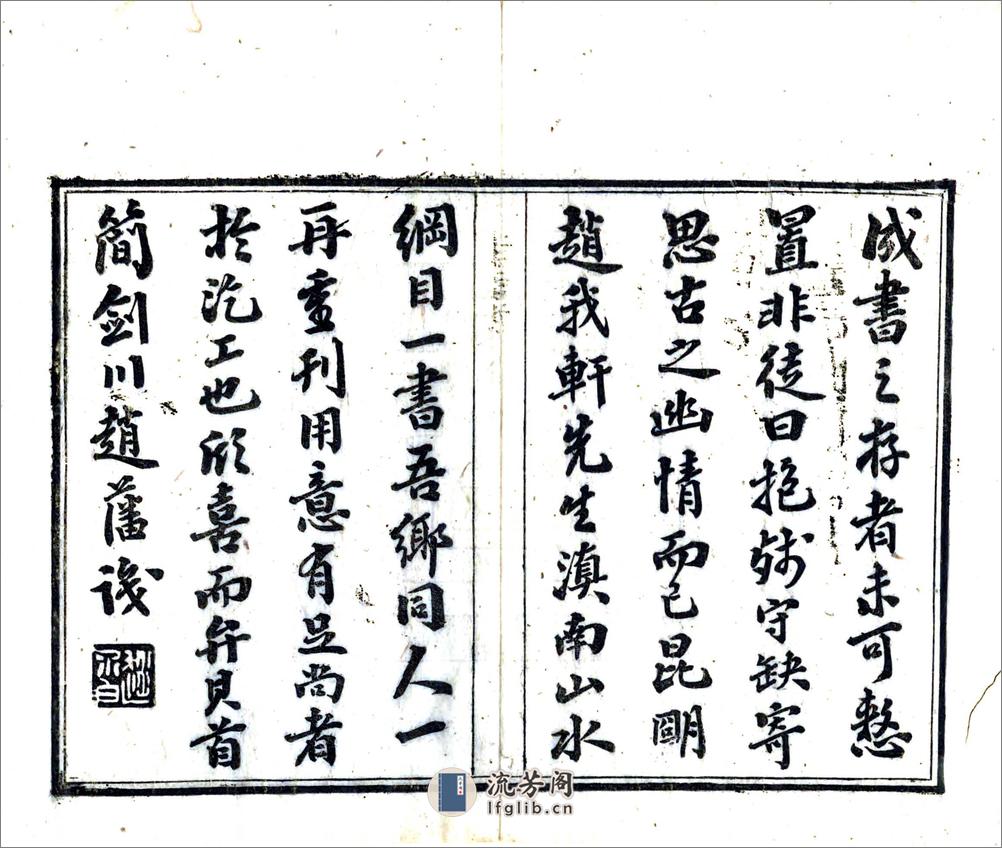 成書之存者未可憗
置非徒曰抱殘守缺寄
思古之幽情而已昆朙
趙我軒先生滇南山水
綱目一書吾鄉同人一
再重刊用意有足尚者
於汔工也欣喜而弁其首
簡劍川趙藩識
流芳阁
lfglib.cn